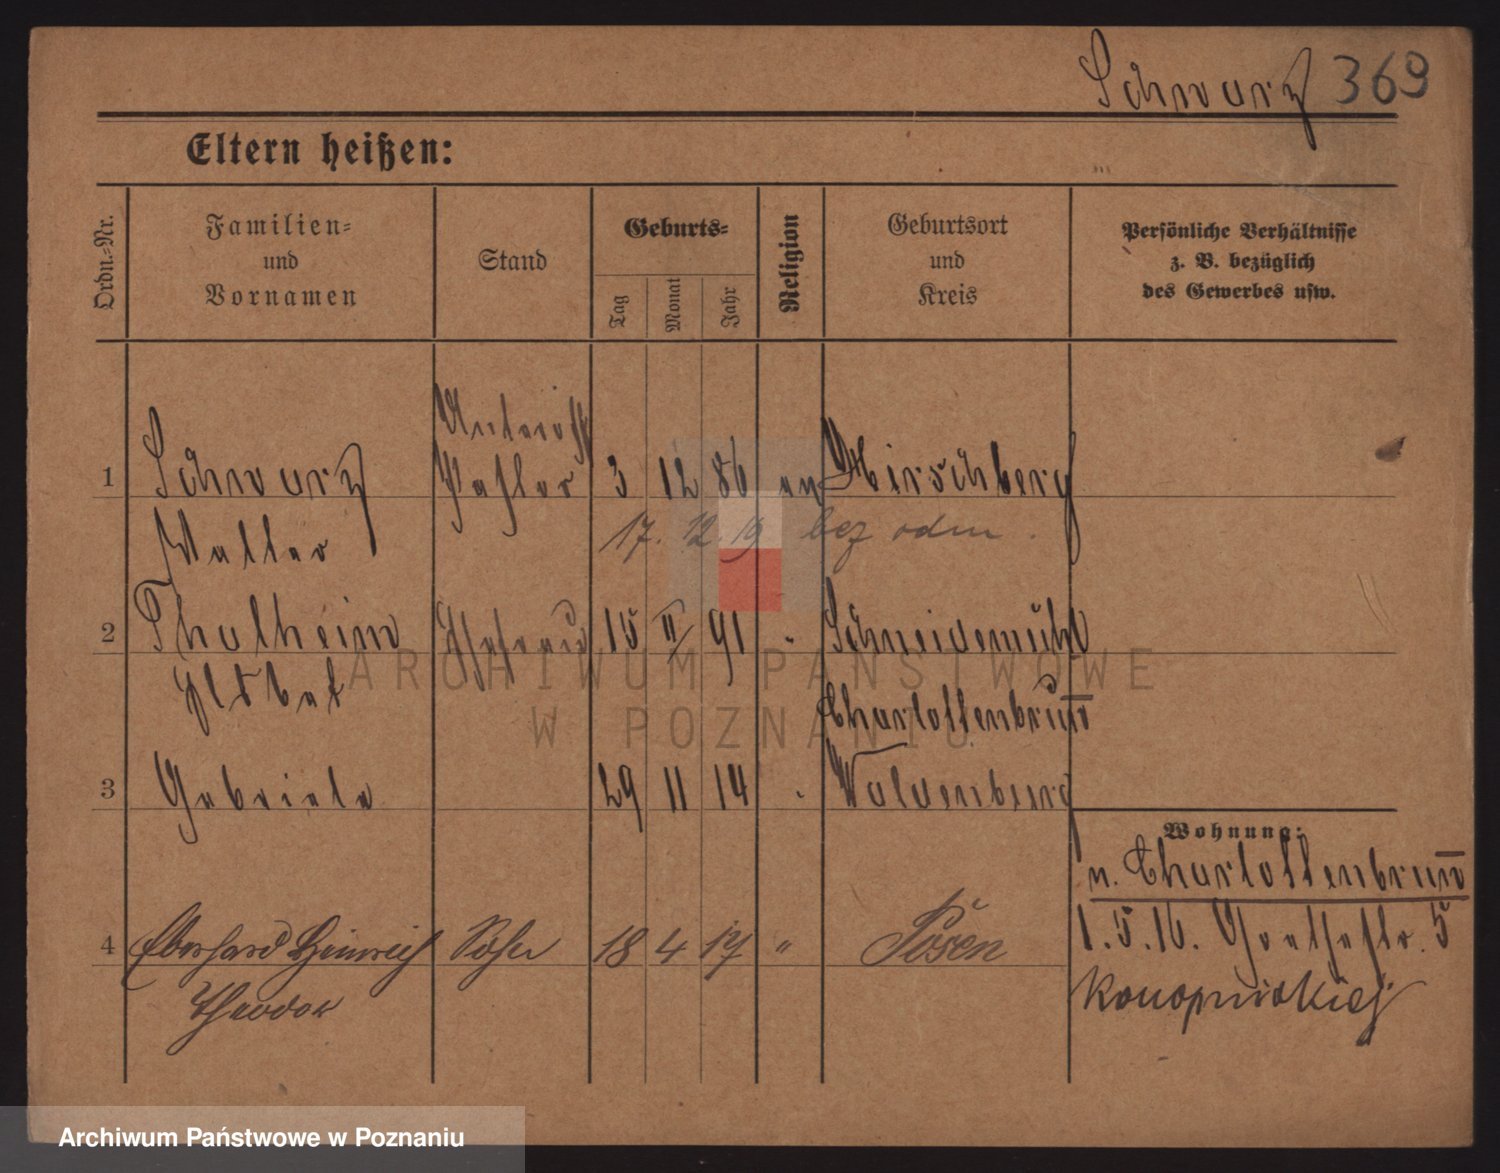 Schwarz 369
Eltern heißen:
Ordn.-Nr.
Familien-
und
Vornamen
Stand
Geburts-
Tag
Monat
Jahr
Religion
Geburtsort
und
Kreis
Persönliche Verhältnisse
z. B. bezüglich
des Gewerbes usw.
1 Schwarz 3 12 86 Hirschberg
Walter 17. 12. 19 bez odm.
2 Thalheim Ehefrau 15 II 91 Schneidemühl
Charlottenbrunn
3 Gabriele 29 11 14 Waldenburg
Wohnung:
n. Charlottenbrunn
4 Eberhard Heinrich 18 4 17 " Posen
Theodor
1.5.16. Goethestr. 5
Konopnickiej
ARCHIWUM PAŃSTWOWE
W POZNANIU
Archiwum Państwowe w Poznaniu